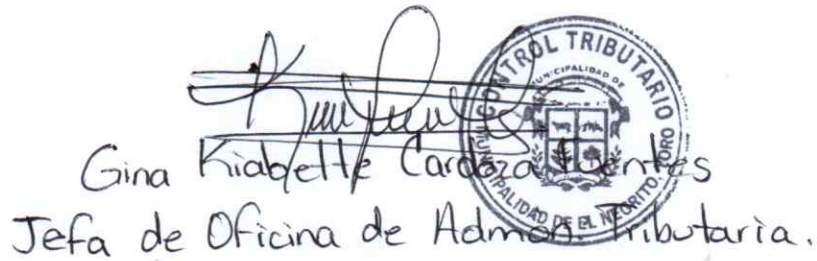 CONTROL TRIBUTARIO
MUNICIPALIDAD DE
MUNICIPALIDAD DE EL NEGRITO, YORO
Gina Kiabette Cardoza Fuentes
Jefa de Oficina de Admón. Tributaria.